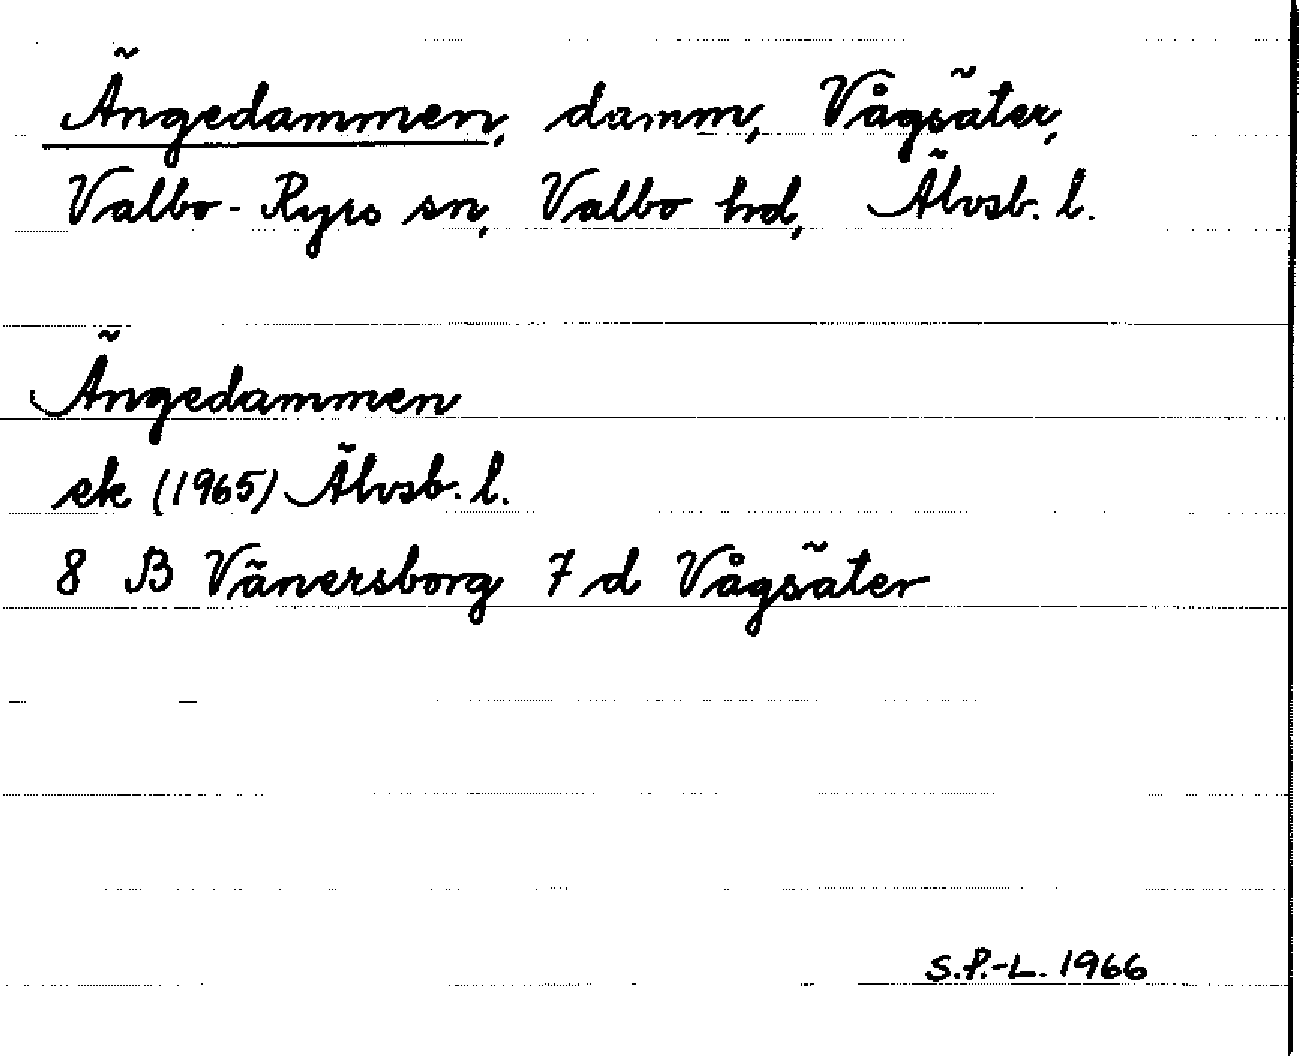 Ängedammen, damm, Vågsäter,
Valbo-Ryrs sn, Valbo hd, Älvsb. l.
Ängedammen
ek (1965) Älvsb. l.
8 B Vänersborg 7 d Vågsäter
S.P.-L. 1966